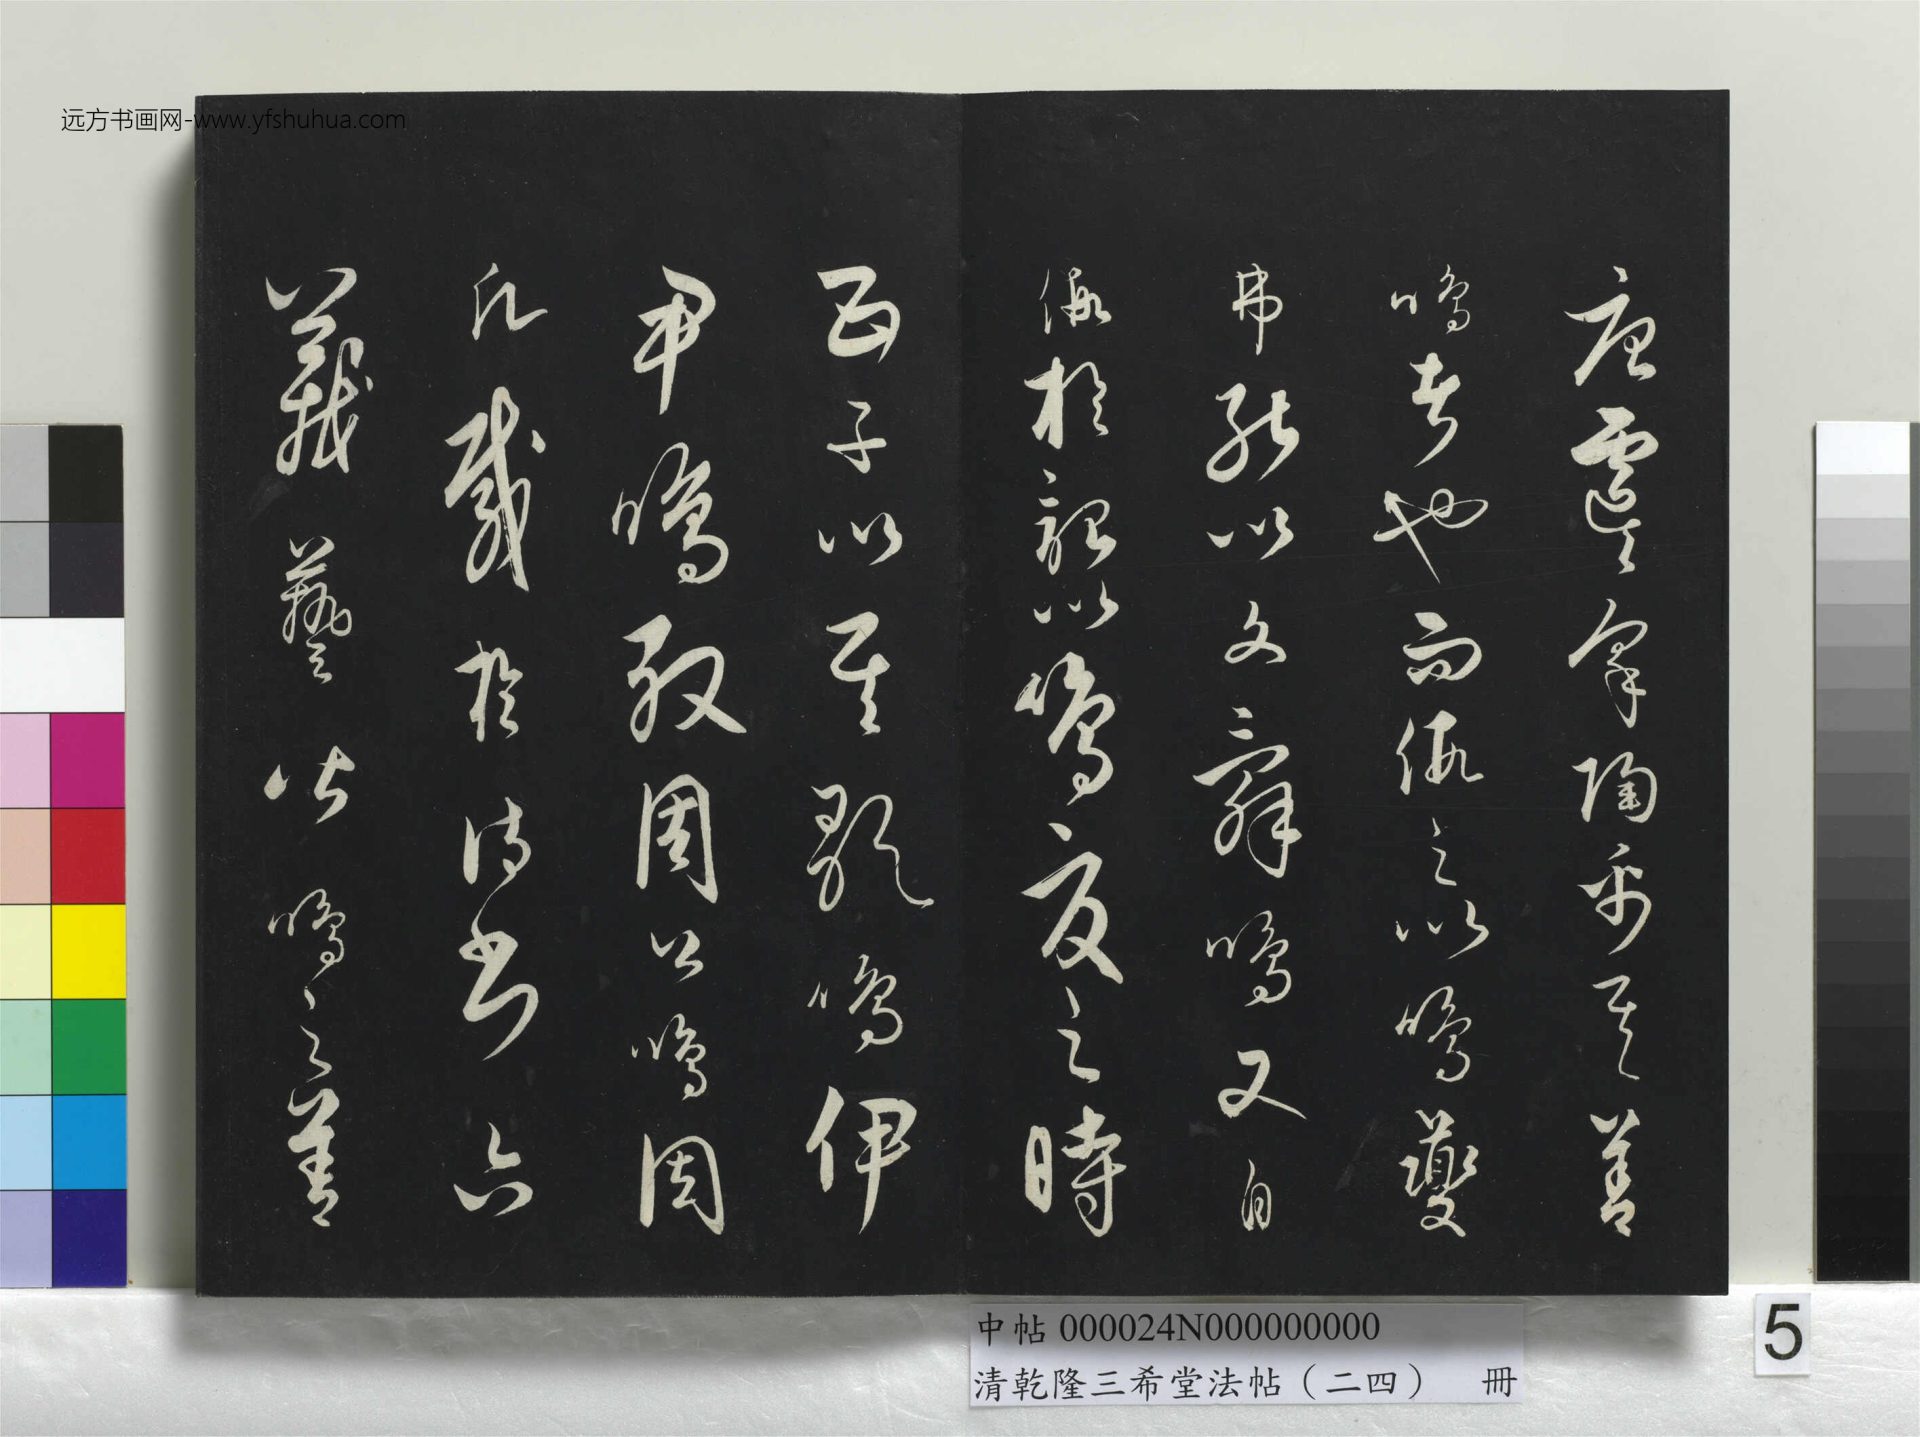 远方书画网-www.yfshuhua.com
唐虞咎陶禹其善
鳴者也而假之以鳴夔
弗能以文辭鳴又自
假於韶以鳴夏之時
五子以其歌鳴伊
尹鳴殷周公鳴周
凡載於詩書六
藝皆鳴之善
中帖 000024N000000000
清乾隆三希堂法帖（二四） 冊
5